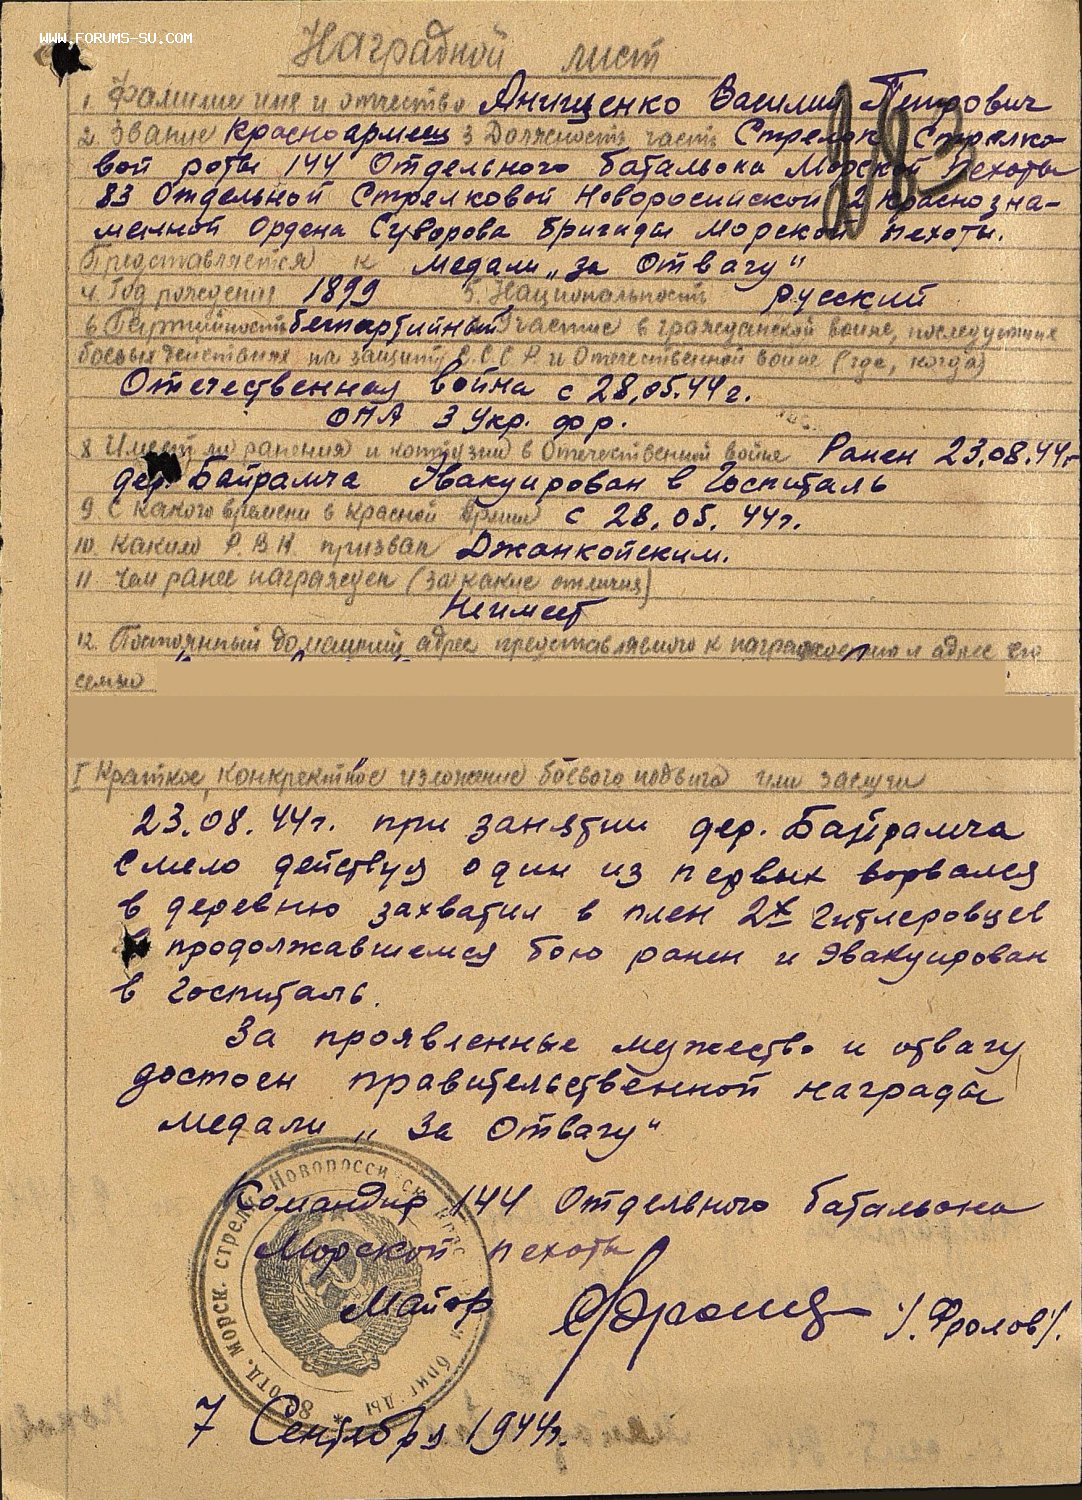 WWW.FORUMS-SU.COM
Наградной лист
1. Фамилие имя и отчество Анищенко Василий Петрович
2. Звание Красноармеец 3 Должность, часть Стрелок Стрелко-
вой роты 144 Отдельного батальона Морской Пехоты
83 Отдельной Стрелковой Новоросийской 2 Краснозна-
менной Ордена Суворова бригады Морской пехоты.
Представляется к медали „за Отвагу"
4. Год рождения 1899 5. Национальность русский
6. Партийность беспартийный Участие в гражданской войне, последующие
боевых действиях на защиту С.С.С.Р. и Отечественной войне (где, когда)
Отечественная война с 28.05.44г.
ОПА 3 Укр. фр.
8 Имеет ли ранения и контузии в Отечественной войне Ранен 23.08.44г
дер. Байрамча Эвакуирован в Госпиталь
9 С какого времени в красной армии с 28.05.44г.
10. Каким Р.В.К. призван Джанкойским.
11 Чем ранее награжден (за какие отличия)
Неимеет
12. Постоянный домашний адрес представляемого к награждению и адрес его
семьи
I Краткое, конкректное изложение боевого подвига или заслуги
23.08.44г. при занятии дер. Байрамча
Смело действуя один из первых ворвался
в деревню захватил в плен 2х Гитлеровцев
В продолжавшемся бою ранен и Эвакуирован
в Госпиталь.
За проявленные мужество и отвагу
достоен правительственной награды
медали „За Отвагу"
Командир 144 Отделвного батальона
Морской пехоты
Майор /Фролов/.
7 Сентября 1944г.
83 отд. морск. стрелк. Новороссийск бригады